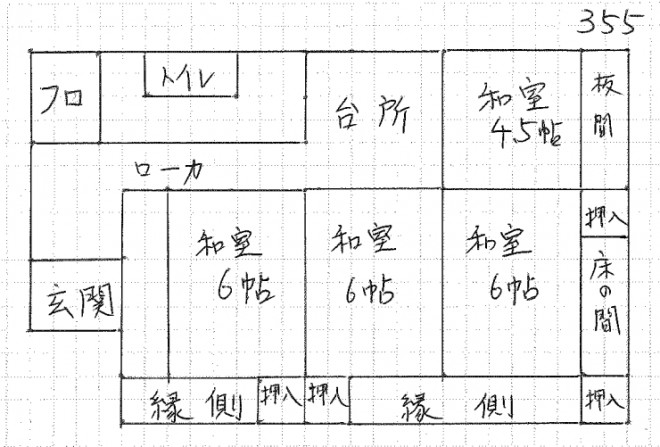 355
フロ
トイレ
台所
和室
4.5帖
板間
ローカ
和室
6帖
和室
6帖
和室
6帖
押入
床の間
玄関
縁側
押入
押入
縁側
押入